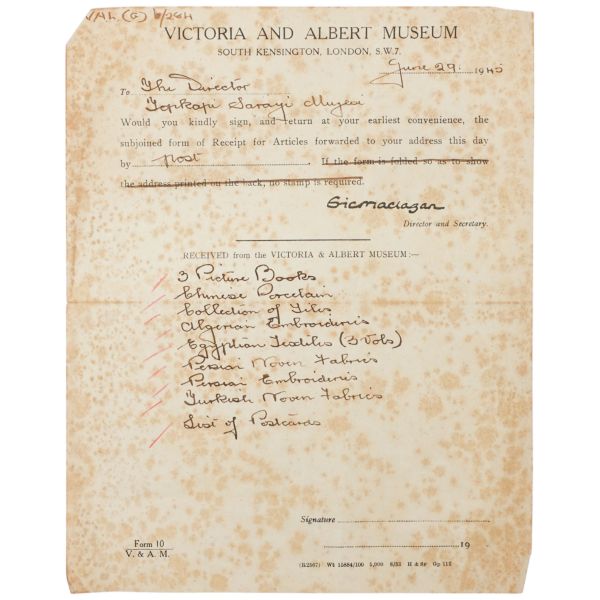 VAL (G) 6/26H
VICTORIA AND ALBERT MUSEUM
SOUTH KENSINGTON, LONDON, S.W.7.
June 29. 1945
To The Director
Topkapi Sarayi Müzesi
Would you kindly sign, and return at your earliest convenience, the
subjoined form of Receipt for Articles forwarded to your address this day
by post. If the form is folded so as to show
the address printed on the back, no stamp is required.
Eric Maclagan
Director and Secretary.
RECEIVED from the VICTORIA & ALBERT MUSEUM:—
3 Picture Books
Chinese Porcelain
Collection of Tiles
Algerian Embroideries
Egyptian Textiles (3 Vols)
Persian Woven Fabrics
Persian Embroideries
Turkish Woven Fabrics
List of Postcards
Signature
19
Form 10
V. & A. M.
(R2567) Wt 15884/100 5,000 8/33 H & Sp Gp 112